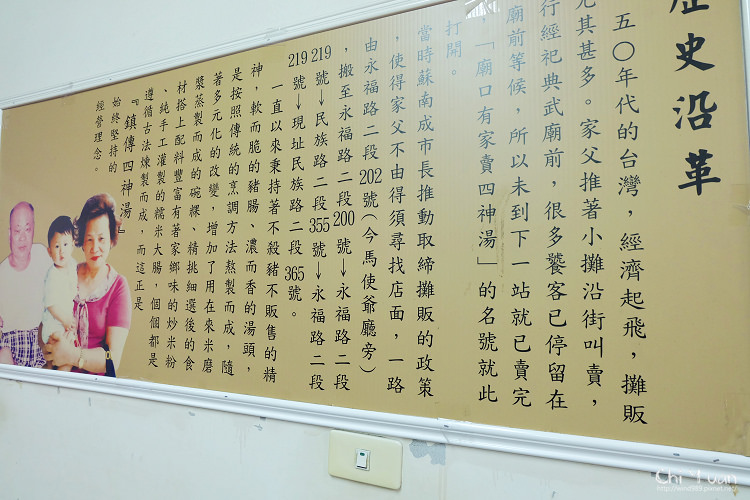 歷史沿革
五〇年代的台灣，經濟起飛，攤販
尤其甚多。家父推著小攤沿街叫賣，
行經祀典武廟前，很多饕客已停留在
廟前等候，所以未到下一站就已賣完
，「廟口有家賣四神湯」的名號就此
打開。
當時蘇南成市長推動取締攤販的政策
，使得家父不由得須尋找店面，一路
由永福路二段202號(今馬使爺廳旁)
，搬至永福路二段200號→永福路二段
219號→民族路二段355號→永福路二段
219號→現址民族路二段365號。
一直以來秉持著不殺豬不販售的精
神，軟而脆的豬腸、濃而香的湯頭，
是按照傳統的烹調方法熬製而成，隨
著多元化的改變，增加了用在來米磨
漿蒸製而成的碗粿、精挑細選後的食
材搭上配料豐富有著家鄉味的炒米粉
、純手工灌製的糯米大腸，個個都是
遵循古法煉製而成，而這正是
『鎮傳四神湯』
始終堅持的
經營理念。
Chi Yuan